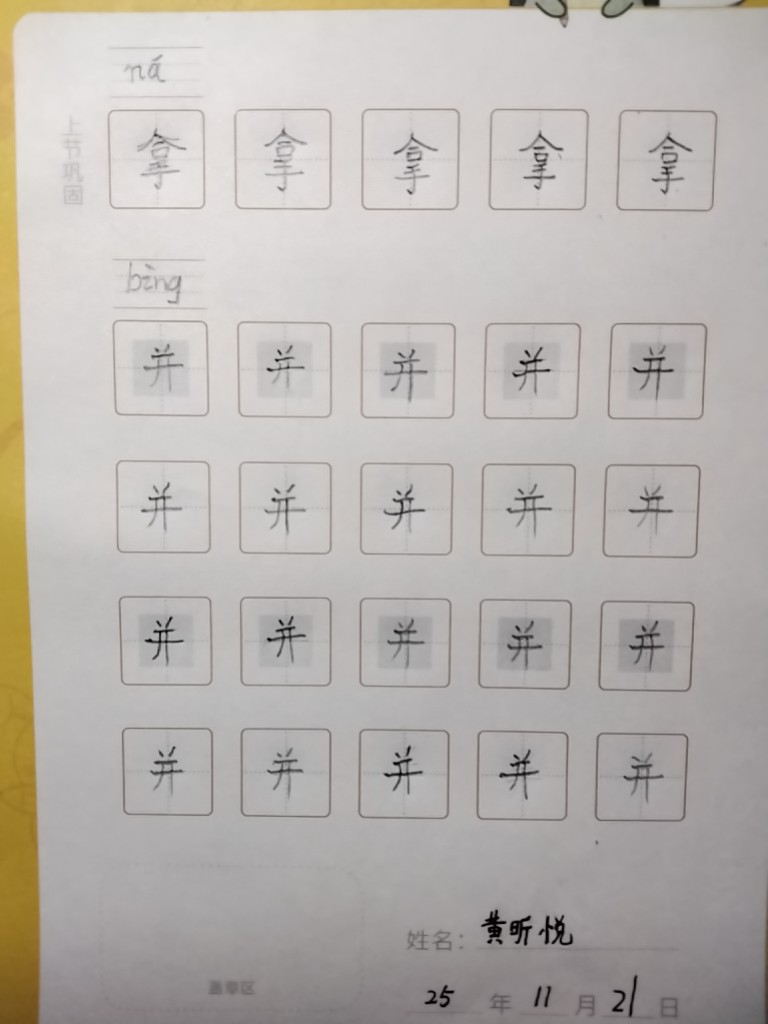 ná
上节巩固
拿 拿 拿 拿 拿
bìng
并 并 并 并 并
并 并 并 并 并
并 并 并 并 并
并 并 并 并 并
姓名：黄昕悦
盖章区
25 年 11 月 21 日